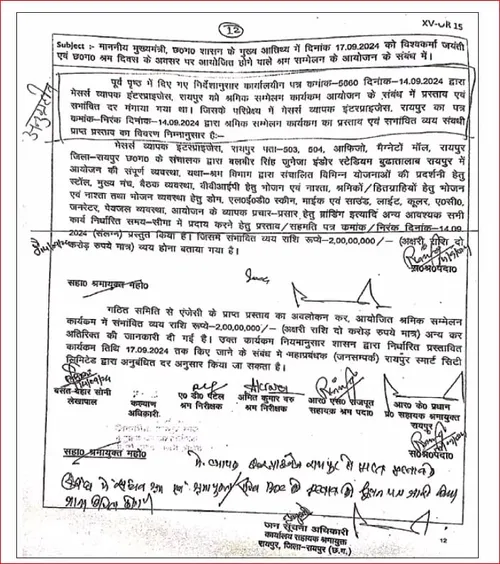 12
XV-OR 15
Subject :- माननीय मुख्यमंत्री, छ०ग० शासन के मुख्य आतिथ्य में दिनांक 17.09.2024 को विश्वकर्मा जयंती
एवं छ०ग० श्रम दिवस के अवसर पर आयोजित होने वाले श्रम सम्मेलन के आयोजन के संबंध में।
पूर्व पृष्ठ में दिए गए निर्देशानुसार कार्यालयीन पत्र कमांक-5060 दिनांक-14.09.2024 द्वारा
मेसर्स व्यापक इंटरप्राइजेस, रायपुर को श्रमिक सम्मेलन कार्यकम आयोजन के संबंध में प्रस्ताव एवं
संभावित दर मंगाया गया था। जिसके परिप्रेक्ष्य में मेसर्स व्यापक इंटरप्राइजेस, रायपुर का पत्र
कमांक-निरंक दिनांक-14.09.2024 द्वारा श्रमिक सम्मेलन कार्यकम का प्रस्ताव एवं संभावित व्यय संबंधी
प्राप्त प्रस्ताव का विवरण निम्नानुसार हैः-
मेसर्स व्यापक इंटरप्राइजेस, रायपुर पता-503, 504, आफिजो, मैग्नेटो मॉल, रायपुर
जिला-रायपुर छ०ग० के संचालक द्वारा बलबीर सिंह जुनेजा इंडोर स्टेडियम बुढातालाब रायपुर में
आयोजन की संपूर्ण व्यवस्था, यथा-श्रम विभाग द्वारा संचालित विभिन्न योजनाओं की प्रदर्शनी हेतु
स्टॉल, मुख्य मंच, बैठक व्यवस्था, वीवीआईपी हेतु भोजन एवं नाश्ता, श्रमिकों/हितग्राहियों हेतु भोजन
एवं नाश्ता तथा भोजन व्यवस्था हेतु डोम, एल०ई०डी० स्क्रीन, माईक एवं साउंड, लाईट, कूलर, ए०सी०,
जनरेटर, पेयजल व्यवस्था, आयोजन के व्यापक प्रचार-प्रसार हेतु ब्रांडिंग इत्यादि अन्य आवश्यक सभी
कार्य निर्धारित समय-सीमा में प्रदाय करने हेतु प्रस्ताव/सहमति पत्र कमांक/निरंक दिनांक-14.09.
2024 (संलग्न) प्रस्तुत किया है। जिसमें संभावित व्यय राशि रूपये-2,00,00,000/- (अक्षरी राशि दो
करोड़ रुपये मात्र) व्यय होना बताया गया है।
स०श्र०पदा०
सहा० श्रमायुक्त महो०
गठित समिति से एंजेसी के प्राप्त प्रस्ताव का अवलोकन कर, आयोजित श्रमिक सम्मेलन
कार्यकम में संभावित व्यय राशि रूपये-2,00,00,000/- (अक्षरी राशि दो करोड़ रुपये मात्र) अन्य कर
अतिरिक्त की जानकारी दी गई है। उक्त कार्यकम नियमानुसार शासन द्वारा निर्धारित प्रस्तावित
कार्यकम तिथि 17.09.2024 तक किए जाने के संबंध में महाप्रबंधक (जनसम्पर्क) रायपुर स्मार्ट सिटी
लिमिटेड द्वारा अनुबंधित दर अनुसार किया जा सकता है।
बसंत बहार सोनी
लेखापाल
कल्याण
अधिकारी
ए० डी० पटेल
श्रम निरीक्षक
अमित कुमार
श्रम निरीक्षक
आर० एस० राजपूत
सहायक श्रम पदा०
आर० के० प्रधान
सहायक श्रमायुक्त
रायपुर
स०श्र०पदा०
सहा० श्रमायुक्त महो०
जन सूचना अधिकारी
कार्यालय सहायक श्रमायुक्त
रायपुर, जिला-रायपुर (छ.ग.)
12